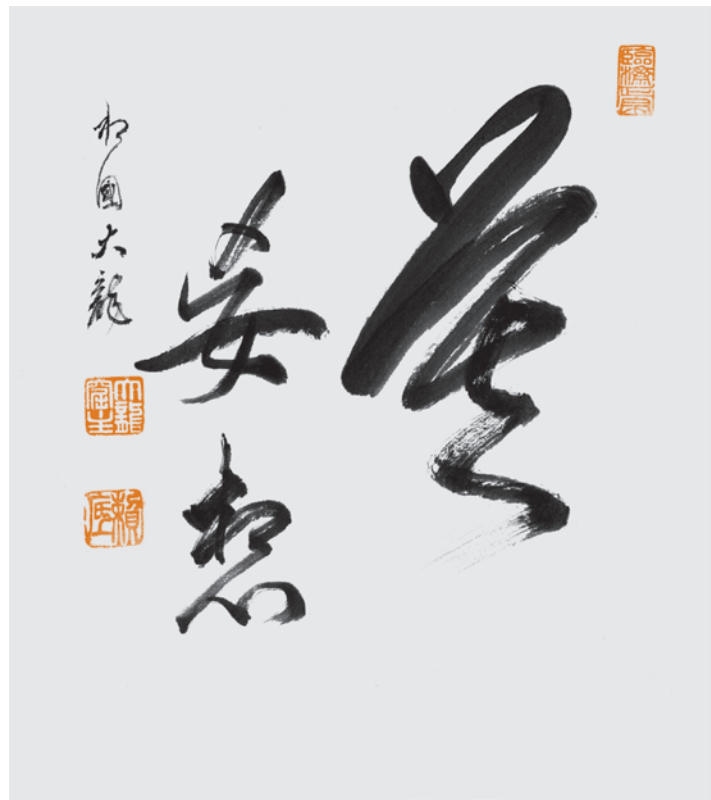 莫
妄想
相國大龍